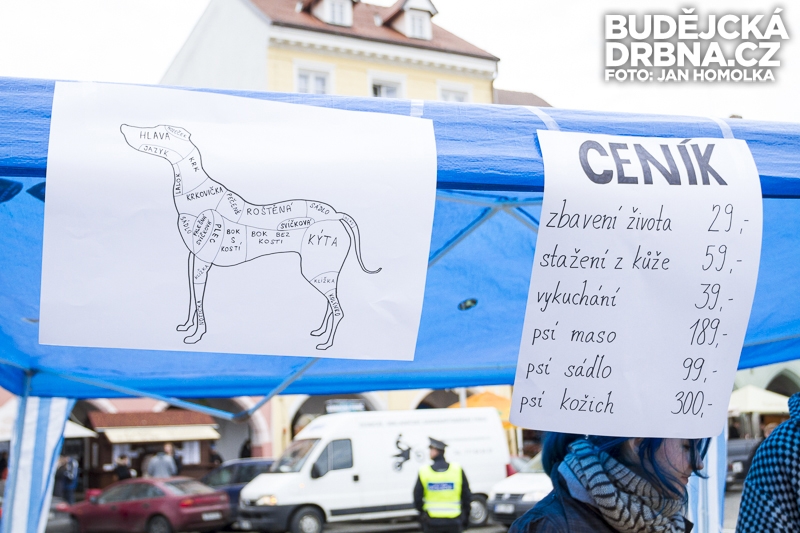 BUDĚJCKÁ
DRBNA.CZ
FOTO: JAN HOMOLKA
HLAVA
JAZYK
KRK
LALOK
KRKOVIČKA
PEČENĚ
ROŠTĚNÁ
SVÍČKOVÁ
SÁDLO
KÝTA
SÁDLO
FALEŠNÁ
SVÍČKOVÁ
PLEC
BOK
S
KOSTÍ
BOK BEZ
KOSTI
KLIŠKA
KLIŠKA
CENÍK
zbavení života 29,-
stažení z kůže 59,-
vykuchání 39,-
psí maso 189,-
psí sádlo 99,-
psí kožich 300,-